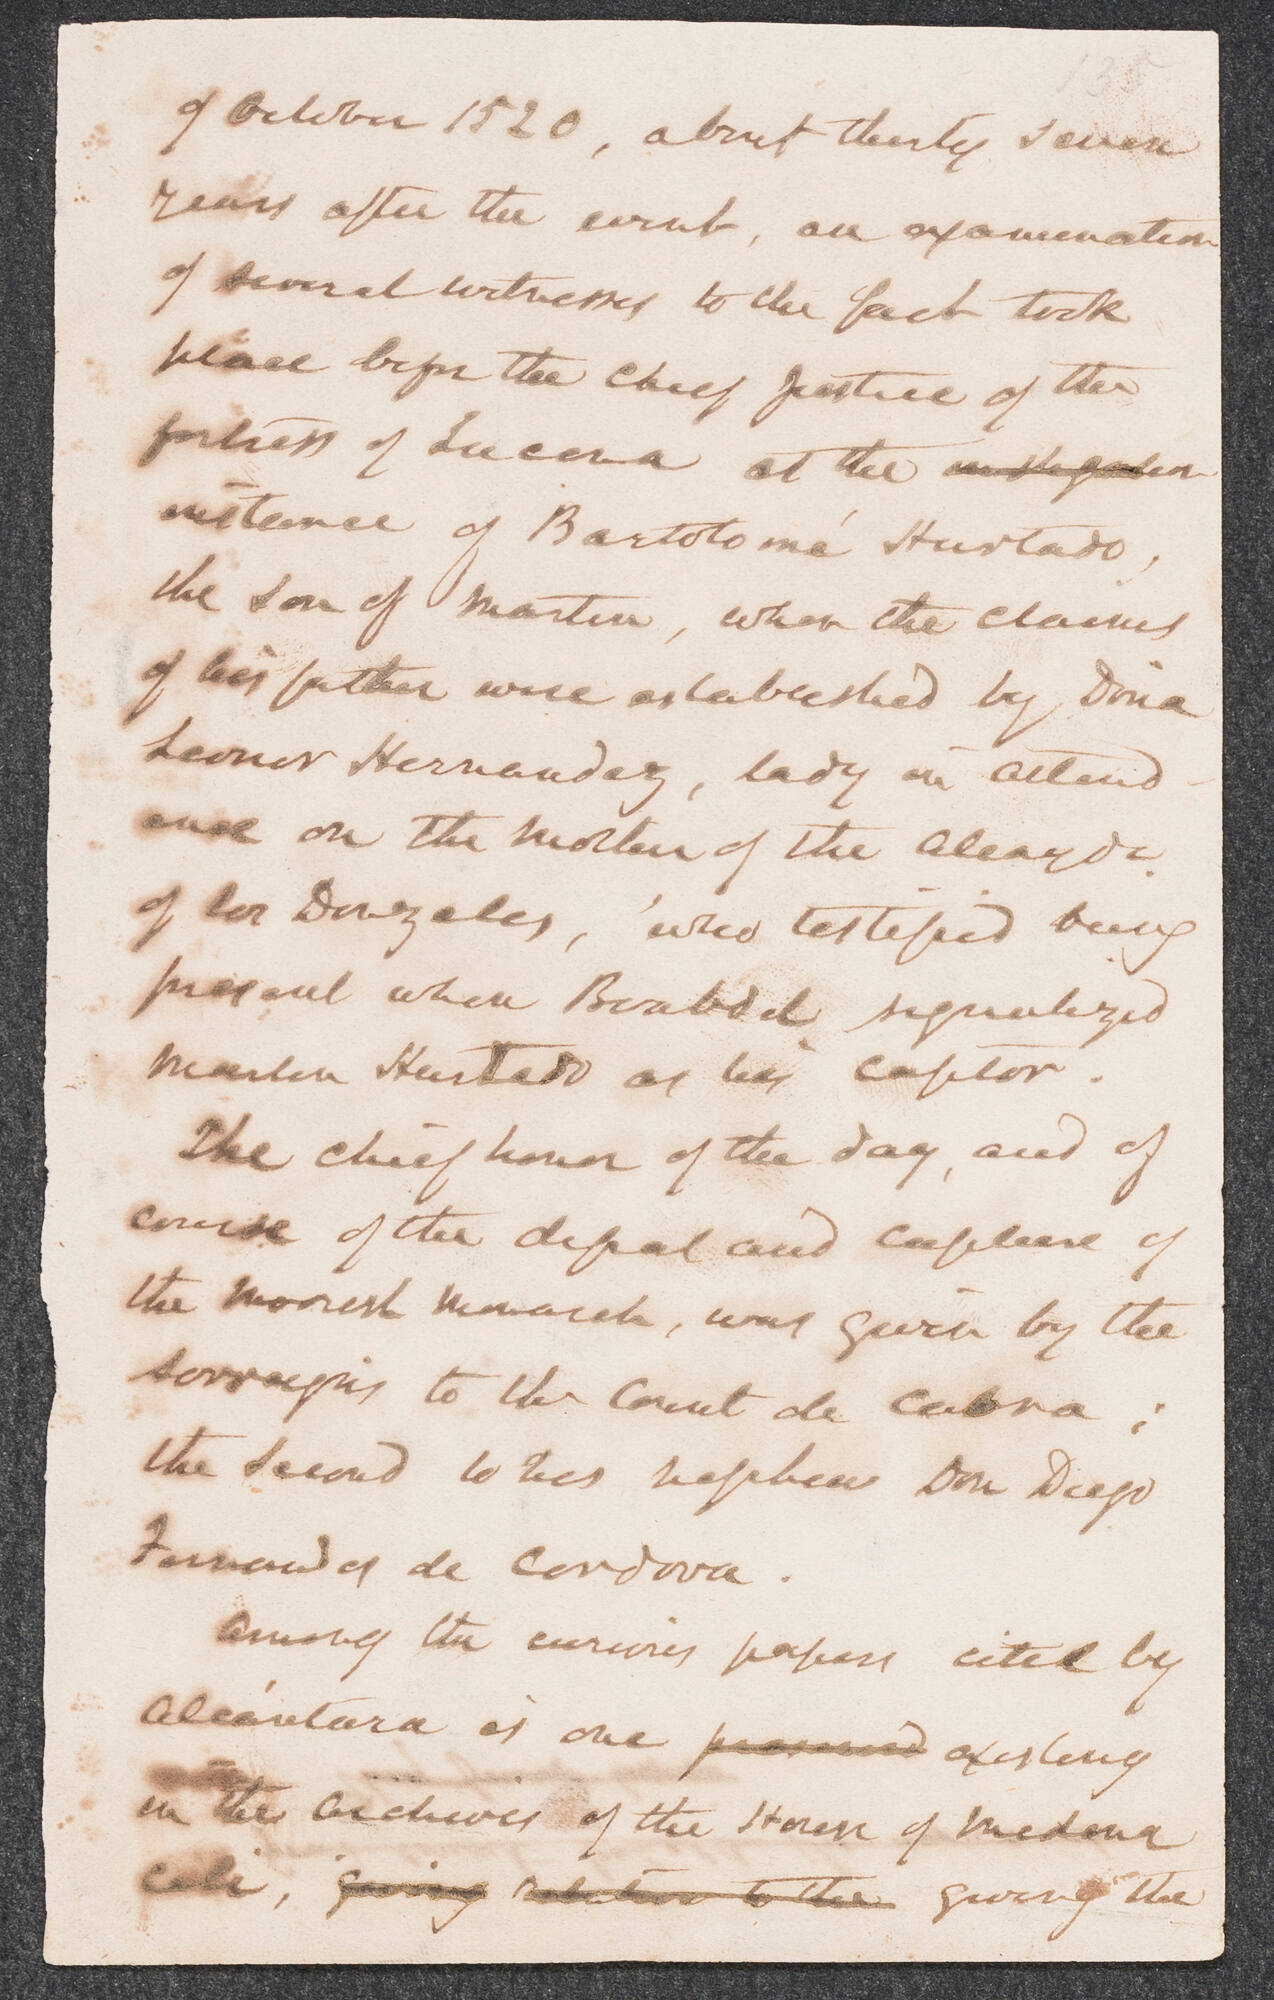 135
of October 1520, about thirty seven
years after the event, an examination
of several witnesses to the fact took
place before the chief Justice of the
fortress of Lucena at the instigation
instance of Bartolomé Hurtado,
the son of Martin, when the claims
of his father were established by Doña
Leonor Hernandez, lady in attend-
ance on the mother of the Alcayde
of los Donzeles, who testified being
present when Boabdil signalized
Martin Hurtado as his captor.
The chief honor of the day, and of
course of the defeat and capture of
the Moorish monarch, was given by the
sovreigns to the Count de Cabra;
the second to his nephew Don Diego
Fernandes de Cordova.
Among the curious papers cited by
Alcántara is one preserved existing
in the archives of the House of Medena
celi, giving relation to the giving the